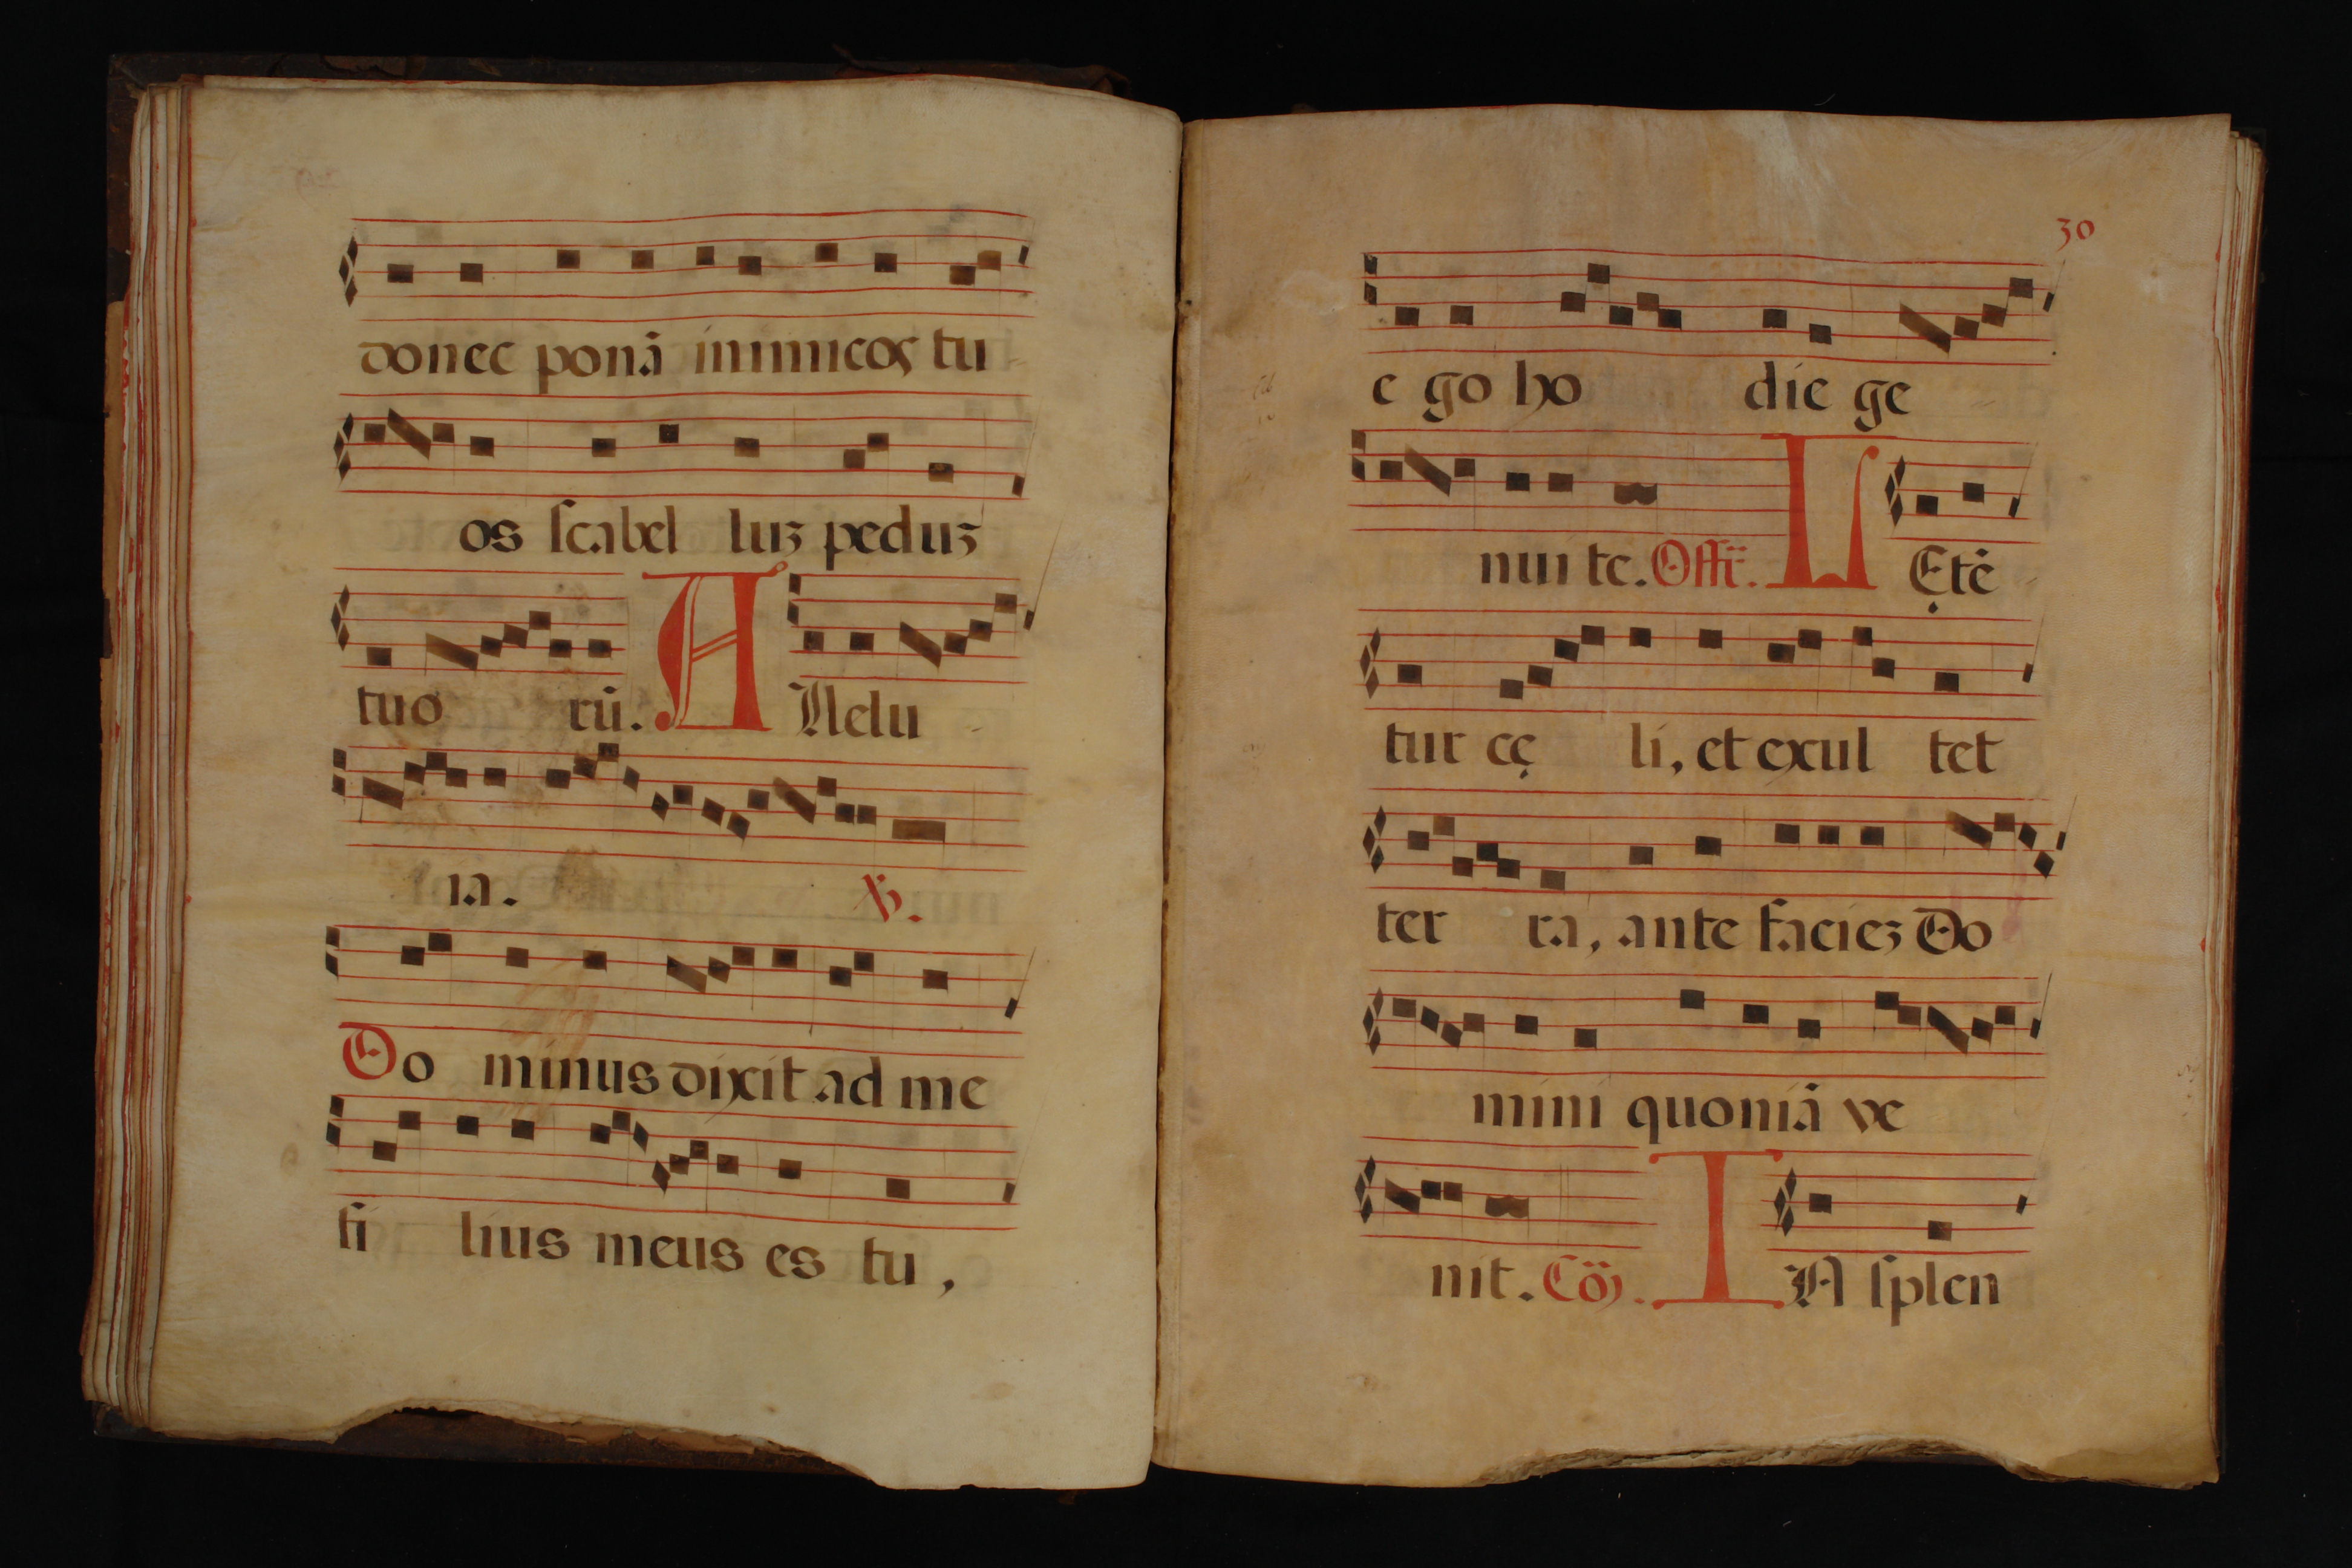 donec ponā inimicos tu
os ſcabel luꝫ peduꝫ
tuo rū. A Llelu
ia. ℣.
Do minus dixit ad me
fi lius meus es tu,
30
e go ho die ge
nui te. Offr̄. L Ętē
tur cę li, et exul tet
ter ra, ante facieꝫ Do
mini quoniā ve
nit. Cōȝ. I N ſplen